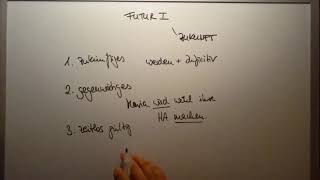 FUTUR I
ZUKUNFT
1. zukünftiges werden + Infinitiv
2. gegenwärtiges
Maria wird wohl ihre
HA machen.
3. zeitlos gültig